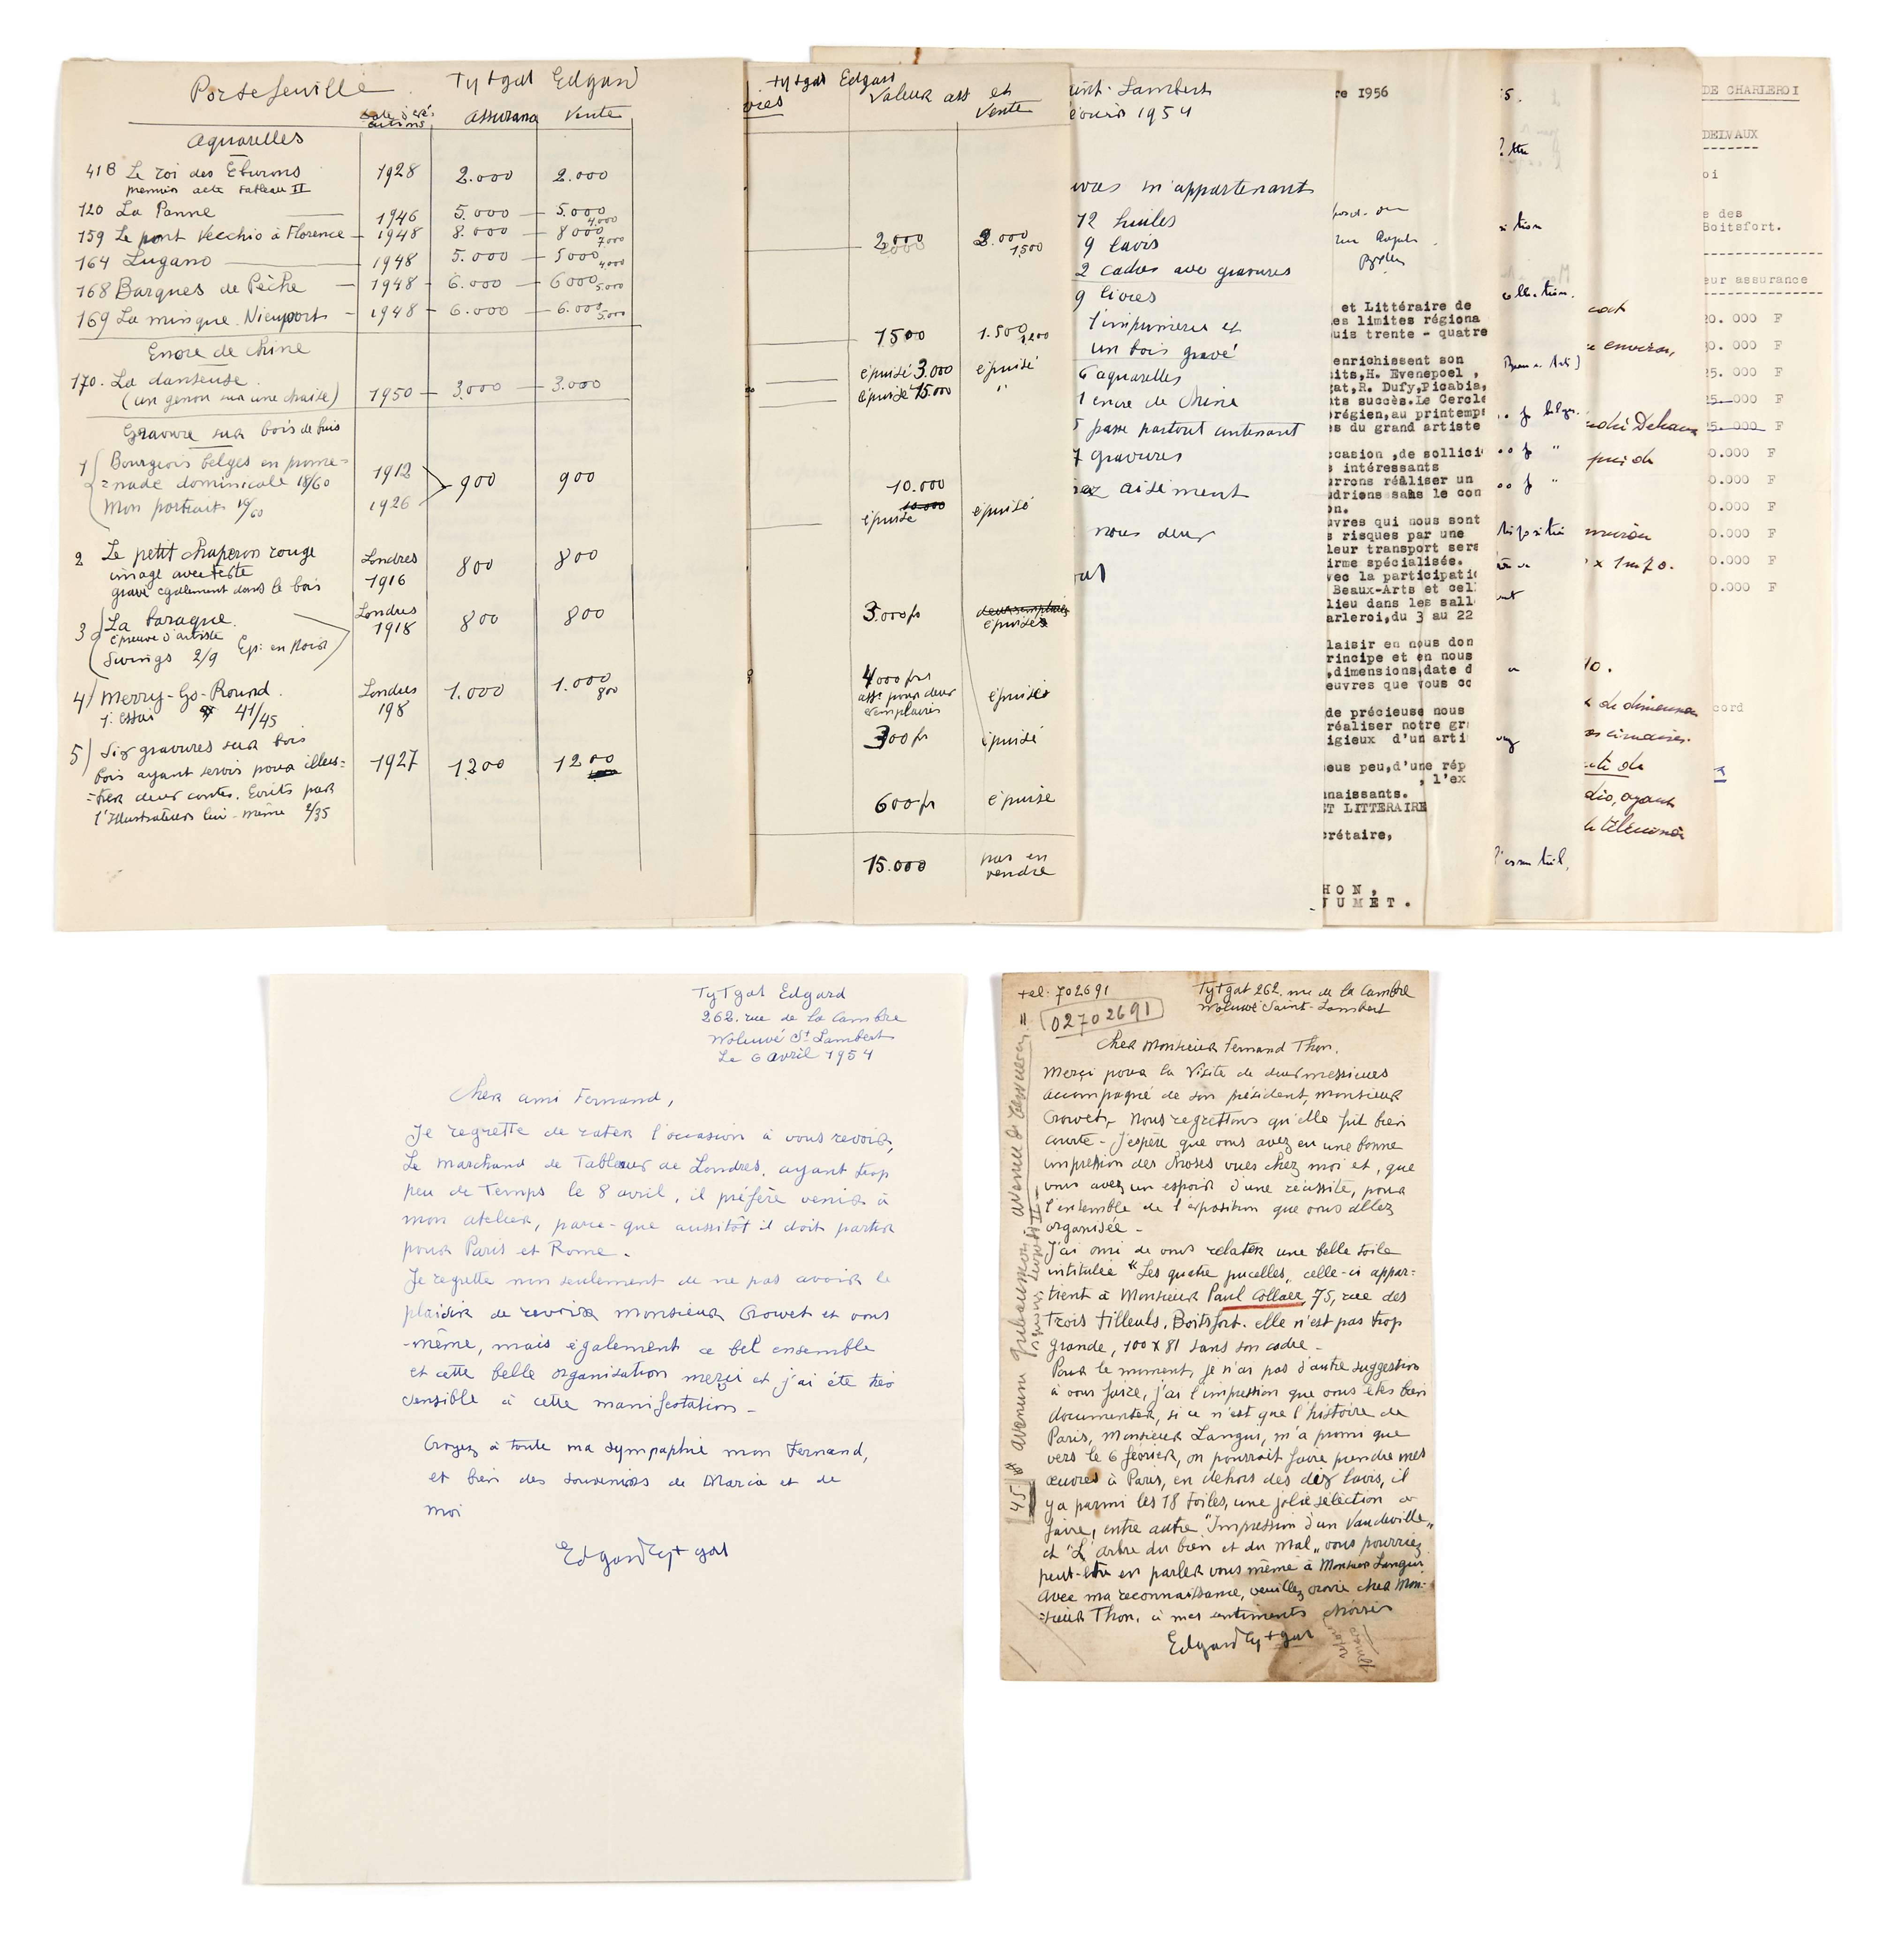 Portefeuille
Tytgat Edgard
assurance
Vente
Aquarelles
41B Le roi des Eburons 1928 2.000 2.000
premier acte tableau II
120 La Panne 1946 5.000 5.000
4.000
159 Le pont Vecchio à Florence 1948 8.000 8000
7.000
164 Lugano 1948 5.000 5000
4.000
168 Barques de Pêche 1948 6.000 6000
5.000
169 La minque Nieuport 1948 6.000 6.000
5.000
Encre de chine
170. La danseuse.
(un genou sur une chaise) 1950 3.000 3.000
Gravure sur bois de buis
1 Bourgeois belges en prome= 1912
=nade dominicale 18/60 900 900
Mon portrait 19/60 1926
2 Le petit chaperon rouge Londres 800 800
image avec texte 1916
gravé egalement dans le bois
3 La baraque. Londres
épreuve d'artiste 1918 800 800
Swings 2/9 Ep: en Noir
4) Merry-Go-Round. Londres 1.000 1.000
800
1: essai 41/45 198
5) Six gravures sur bois 1927 1200 1200
bois ayant servis pour illus=
=trer deux contes. Ecrits par
l'Illustrateur lui-même 2/35
Tytgat Edgard
Valeur ass et
Vente
2000 2.000
1500
1500 1.500
épuisé 3.000 épuisé
épuisé 15.000 "
10.000
10.000
épuisé épuisé
3.000fr
épuisés
4000 frs
ass. pour deux épuisé
exemplaires
300fr épuisé
600fr épuisé
15.000 pas en
vendre
Saint-Lambert
1954
m'appartenant
12 huiles
9 lavis
2 cadres avec gravures
9 livres
l'imprimerie et
un bois gravé
6 aquarelles
1 encre de chine
5 passe partout contenant
7 gravures
aisément
nous deux
re 1956
et Littéraire de
es limites régiona
uis trente - quatre
enrichissent son
its,H. Evenepoel ,
gat,R. Dufy,Picabia,
ts succès.Le Cercle
région,au printemps
s du grand artiste
casion ,de sollici
s intéressants
rrons réaliser un
driens sans le con
on.
uvres qui nous sont
s risques par une
leur transport sera
irme spécialisée.
vec la participati
Beaux-Arts et cel
lieu dans les sall
arleroi,du 3 au 22
laisir en nous don
rincipe et en nous
,dimensions,date d
euvres que vous co
de précieuse nous
réaliser notre gr
igieux d'un arti
ous peu,d'une rép
, l'ex
nnaissants.
ET LITTERAIRE
crétaire,
HON,
JUMET.
5.
collection.
Beaux Arts)
l'essentiel,
environ,
x 1m70.
de dimension
DE CHARLEROI
DELVAUX
oi
e des
Boitsfort.
eur assurance
20. 000 F
30. 000 F
25. 000 F
25. 000 F
25. 000 F
0.000 F
0.000 F
0.000 F
0.000 F
0.000 F
0.000 F
cord
TyTgat Edgard
262. rue de la Cambre
Woluwé St Lambert
Le 6 avril 1954
Cher ami Fernand,
Je regrette de rater l'occasion à vous revoir,
Le marchand de Tableaux de Londres, ayant trop
peu de Temps le 8 avril, il préfère venir à
mon atelier, parce-que aussitôt il doit partir
pour Paris et Rome.
Je regrette non seulement de ne pas avoir le
plaisir de revoir monsieur Crowet et vous
-même, mais également ce bel ensemble
et cette belle organisation merçi et j'ai été très
sensible à cette manifestation -
Croyez à toute ma sympaphie mon Fernand,
et bien des souvenirs de Maria et de
moi
Edgard Tytgat
tel: 702691
02702691
Tytgat 262. rue de la Cambre
Woluwé Saint-Lambert
Cher Monsieur Fernand Thon.
Merçi pour la Visite de deux messieurs
accompagné de son président, monsieur
Crowet. Nous regrettons qu'elle fut bien
courte - J'espère que vous avez eu une bonne
impression des choses vues chez moi et, que
vous avez un espoir d'une réussite, pour
l'ensemble de l'exposition que vous allez
organisée -
J'ai omi de vous relater une belle toile
intitulée "Les quatre pucelles, celle-ci appar=
tient à Monsieur Paul Collaer, 75, rue des
Trois tilleuls. Boitsfort. elle n'est pas trop
grande, 100 x 81 sans son cadre -
Pour le moment, je n'ai pas d'autre suggestion
à vous faire, j'ai l'impression que vous êtes bien
documenter, si ce n'est que l'histoire de
Paris, monsieur Langui, m'a promi que
vers le 6 février, on pourrait faire prendre mes
œuvres à Paris, en dehors des dix lavis, il
y a parmi les 18 toiles, une jolie sélection a
faire, entre autre "Impression d'un Vaudeville"
et "L'arbre du bien et du mal" vous pourriez
peut-être en parler vous même à Monsieur Langui
Avec ma reconnaissance, veuillez croire cher Mon=
=sieur Thon, à mes sentiments choisis
Edgard Tytgat